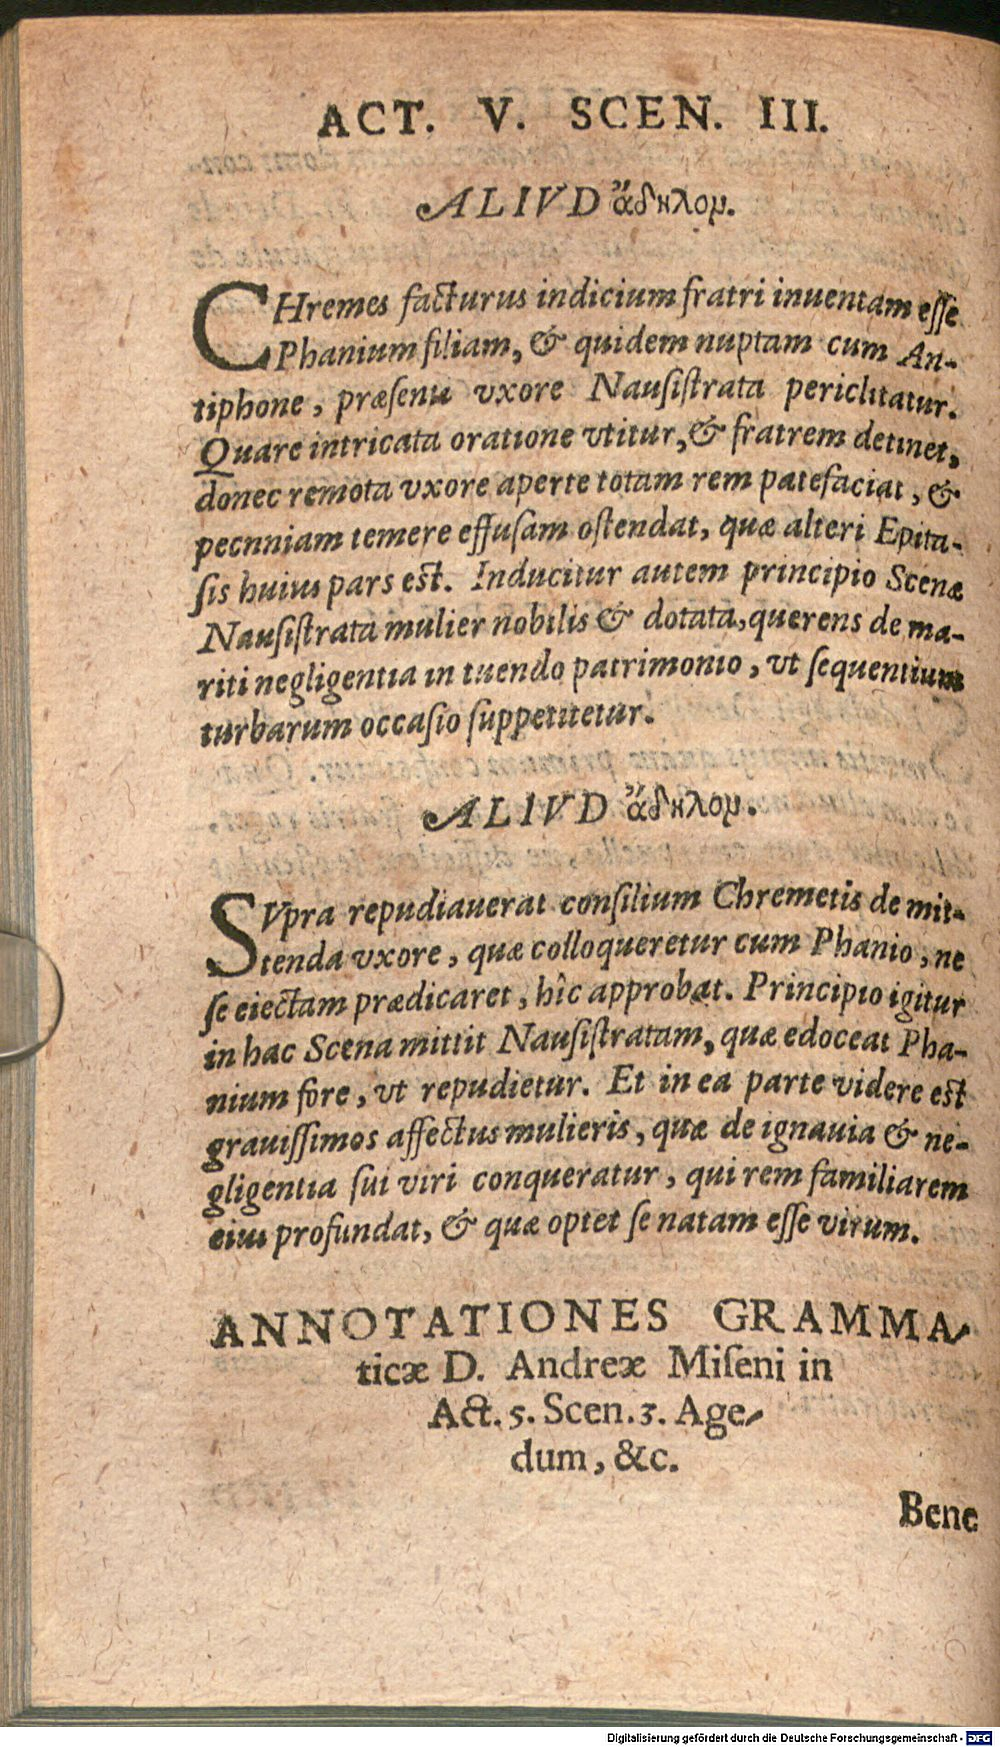 ACT. V. SCEN. III.
ALIVD ἄδηλομ.
CHremes facturus indicium fratri inuentam eſſe
Phanium filiam, & quidem nuptam cum An-
tiphone, præſenti vxore Nauſiſtrata periclitatur.
Quare intricata oratione vtitur, & fratrem detinet,
donec remota vxore aperte totam rem patefaciat, &
pecnniam temere effuſam oſtendat, quæ alteri Epita-
ſis huius pars eſt. Inducitur autem principio Scenæ
Nauſiſtrata mulier nobilis & dotata, querens de ma-
riti negligentia in tuendo patrimonio, vt ſequentium
turbarum occaſio ſuppetitetur.
ALIVD ἄδηλομ.
SVpra repudiauerat conſilium Chremetis de mit-
tenda vxore, quæ colloqueretur cum Phanio, ne
ſe eiectam prædicaret, hîc approbat. Principio igitur
in hac Scena mittit Nauſiſtratam, quæ edoceat Pha-
nium fore, vt repudietur. Et in ea parte videre eſt
grauiſſimos affectus mulieris, quæ de ignauia & ne-
gligentia ſui viri conqueratur, qui rem familiarem
eius profundat, & quæ optet ſe natam eſſe virum.
ANNOTATIONES GRAMMA-
ticæ D. Andreæ Miſeni in
Act. 5. Scen. 3. Age-
dum, &c.
Bene
Digitalisierung gefördert durch die Deutsche Forschungsgemeinschaft - DFG